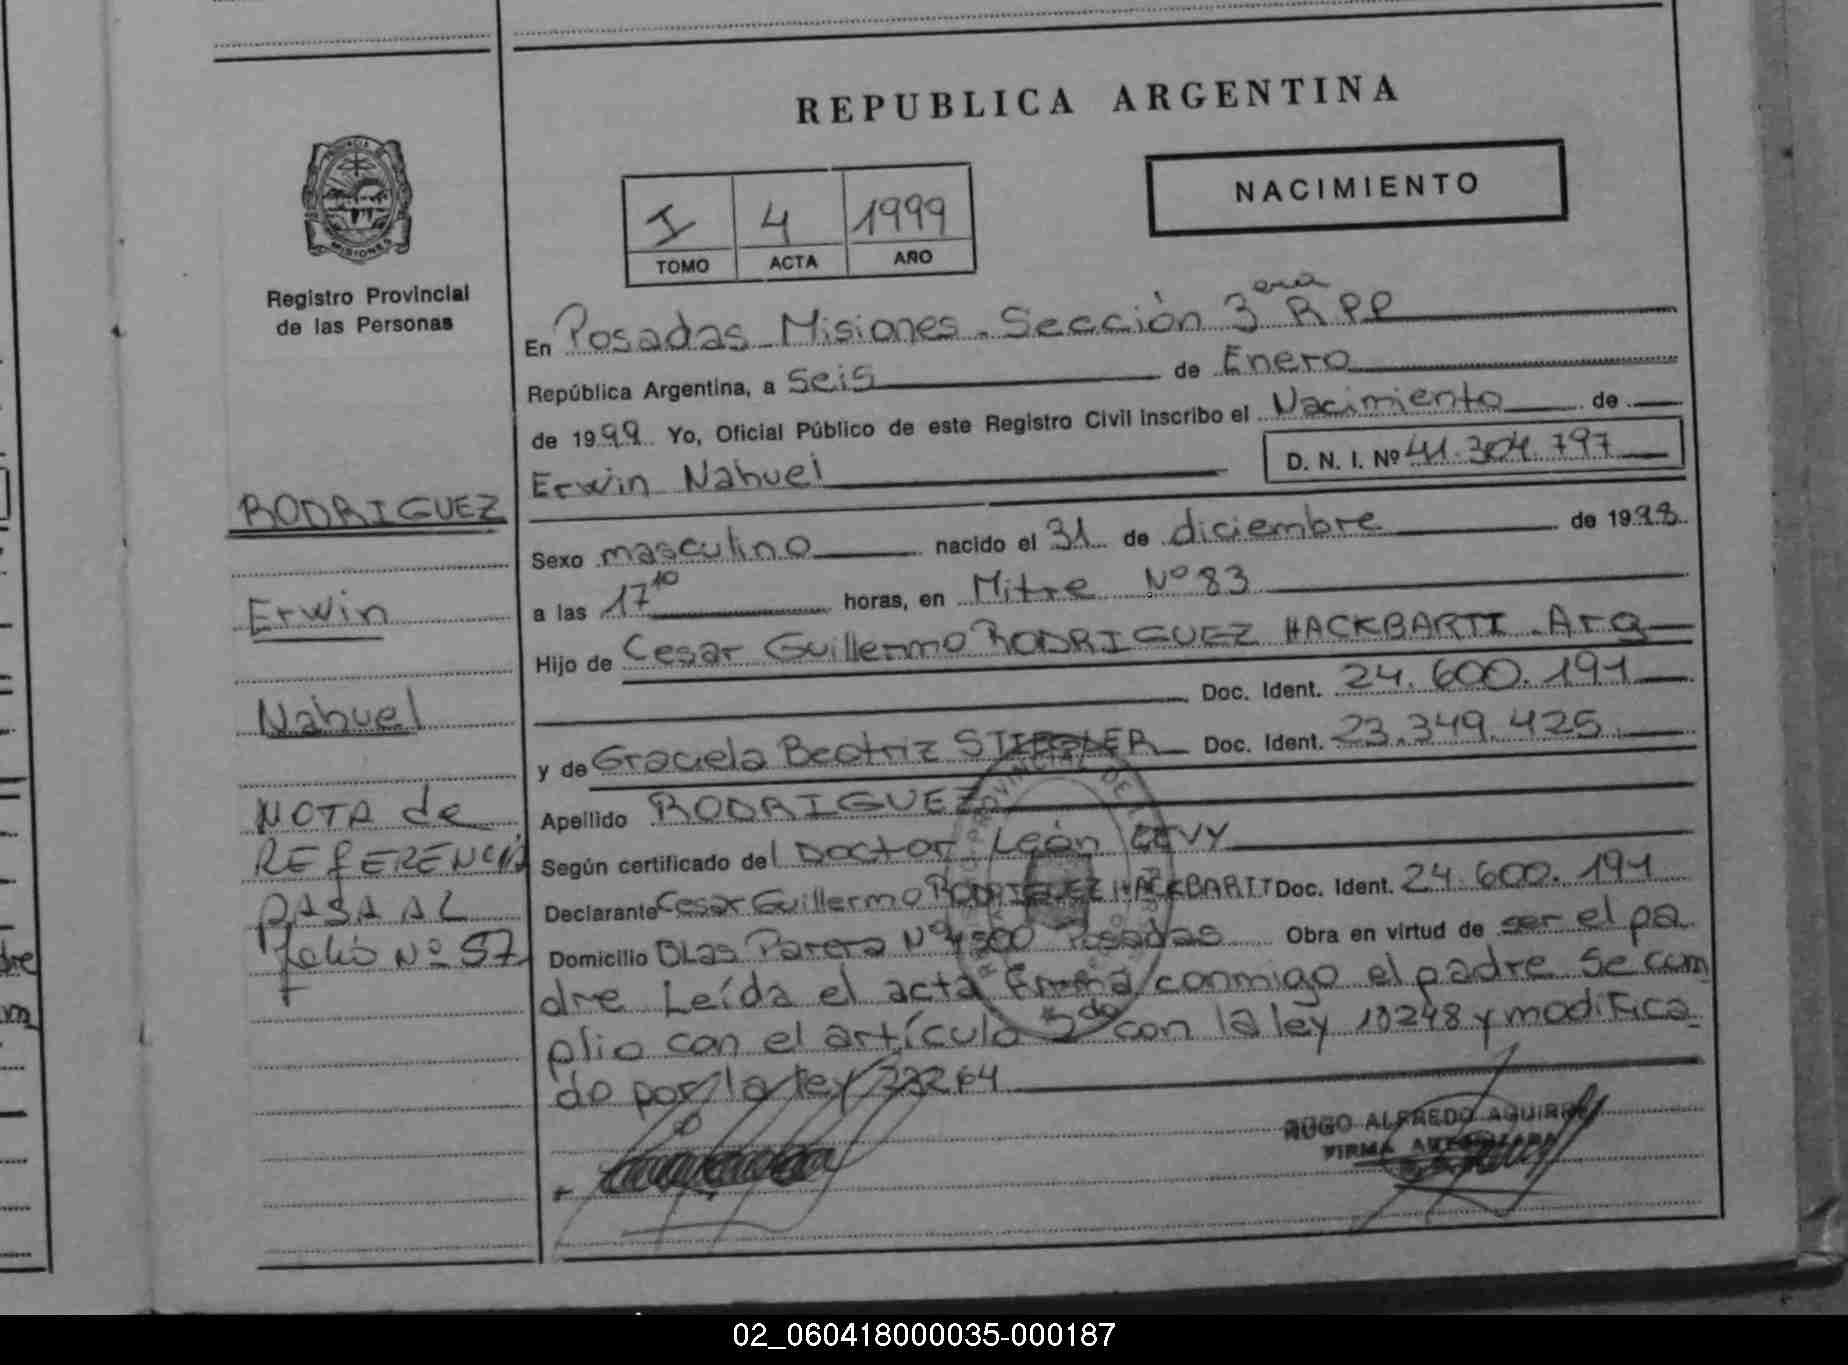 REPUBLICA ARGENTINA
PROVINCIA DE
MISIONES
Registro Provincial
de las Personas
I 4 1999
TOMO ACTA AÑO
NACIMIENTO
En Posadas Misiones. Sección 3era RPP
República Argentina, a seis de Enero
de 1999 Yo, Oficial Público de este Registro Civil inscribo el Nacimiento de
Erwin Nahuel D. N. I. Nº 41.304.797
RODRIGUEZ
Sexo masculino nacido el 31 de diciembre de 1998
Erwin
a las 17 10 horas, en Mitre Nº 83
Hijo de Cesar Guillermo RODRIGUEZ HACKBARTT. Arg
Doc. Ident. 24.600.191
Nahuel
y de Graciela Beatriz STIEGLER Doc. Ident. 23.349.425
NOTA de
Apellido RODRIGUEZ
REFERENCIA
Según certificado del Doctor León LEVY
PASA AL
Declarante Cesar Guillermo RODRIGUEZ HACKBARTT Doc. Ident. 24.600.191
folio Nº 57
Domicilio Blas Parera Nº 4500 Posadas Obra en virtud de ser el pa
dre Leída el acta firma conmigo el padre Se cum
plio con el artículo 5do con la ley 18248 y modifica
do por la ley
HUGO ALFREDO AGUIRRE
FIRMA AUTORIZADA
02_060418000035-000187